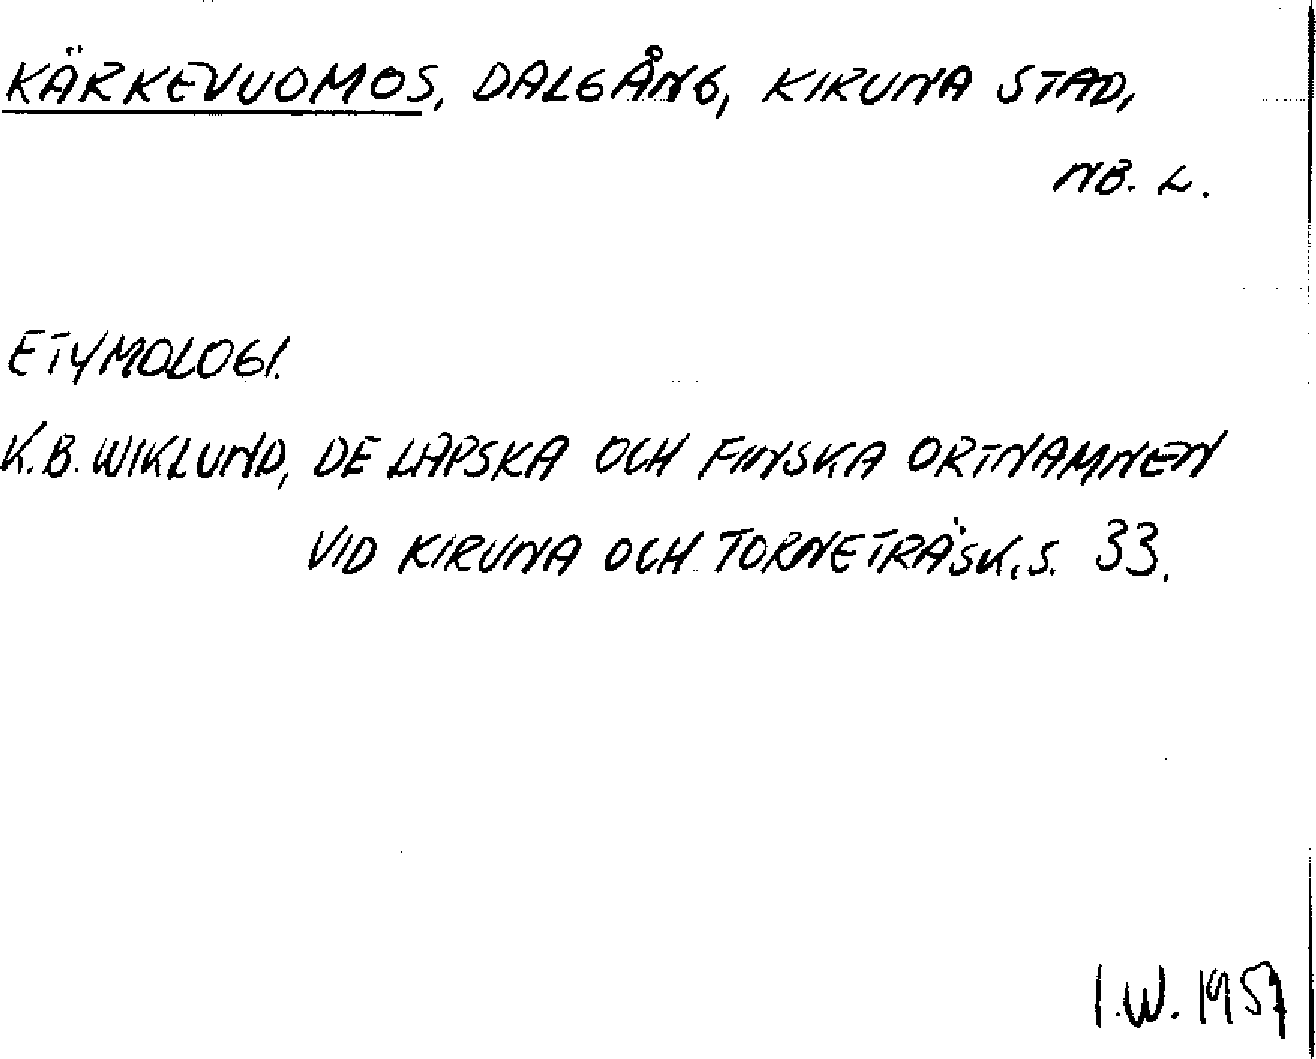 KÄRKEVUOMOS, DALGÅNG, KIRUNA STAD,
NB. L.
ETYMOLOGI.
K.B. WIKLUND, DE LAPSKA OCH FINSKA ORTNAMNEN
VID KIRUNA OCH TORNETRÄSK, S. 33.
I.W. 1957